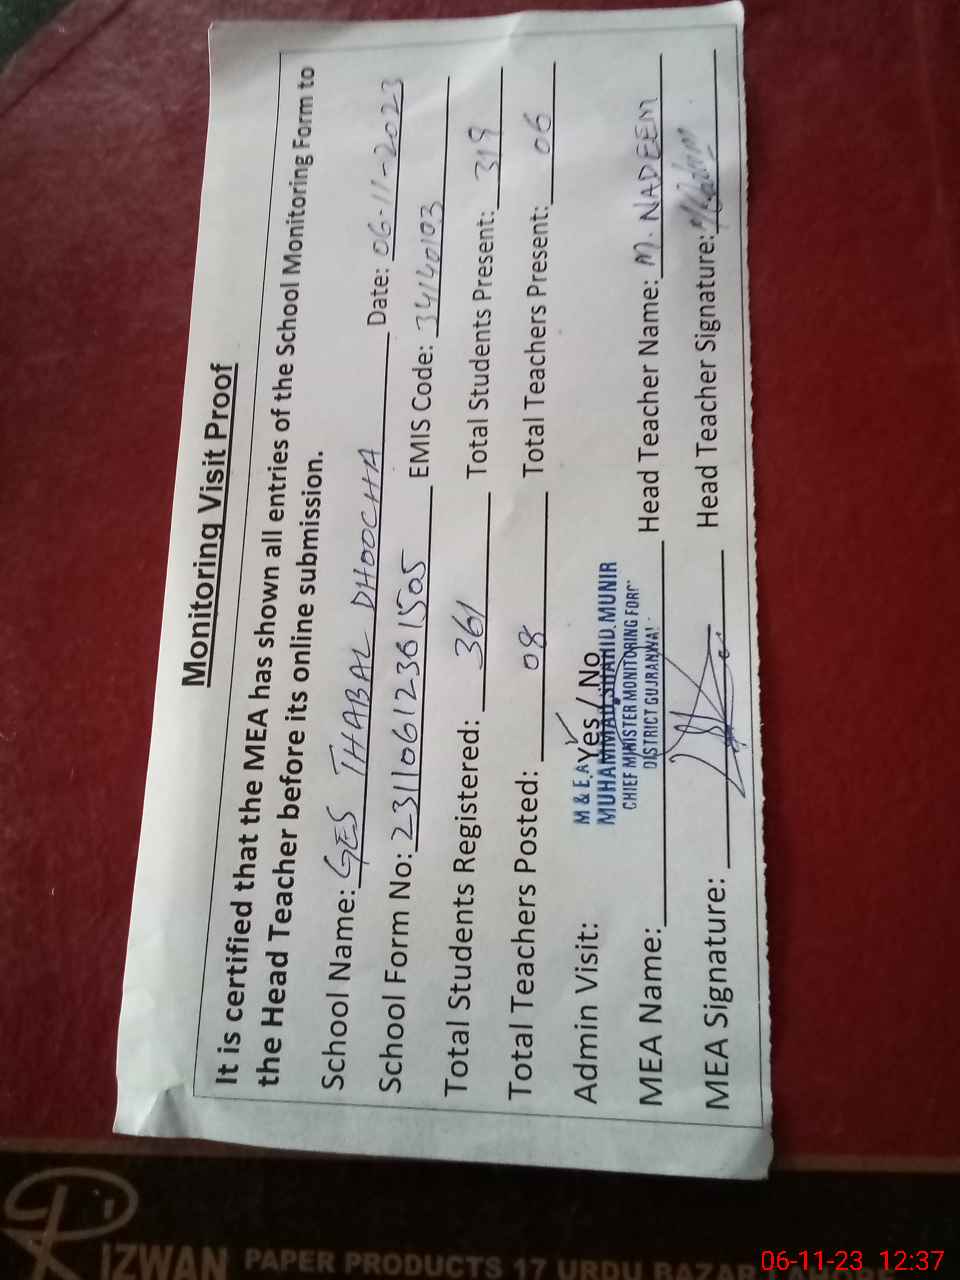 Monitoring Visit Proof
It is certified that the MEA has shown all entries of the School Monitoring Form to
the Head Teacher before its online submission.
School Name: GES THABAL DHOOCHA Date: 06-11-2023
School Form No: 23110612361505 EMIS Code: 34140103
Total Students Registered: 361 Total Students Present: 319
Total Teachers Posted: 08 Total Teachers Present: 06
Admin Visit: Yes / No
M & E.A
MUHAMMAD SHAHID MUNIR
CHIEF MINISTER MONITORING FORC
DISTRICT GUJRANWAL
MEA Name: Head Teacher Name: M. NADEEM
MEA Signature: Head Teacher Signature:
RIZWAN PAPER PRODUCTS 17 URDU BAZAR
06-11-23 12:37